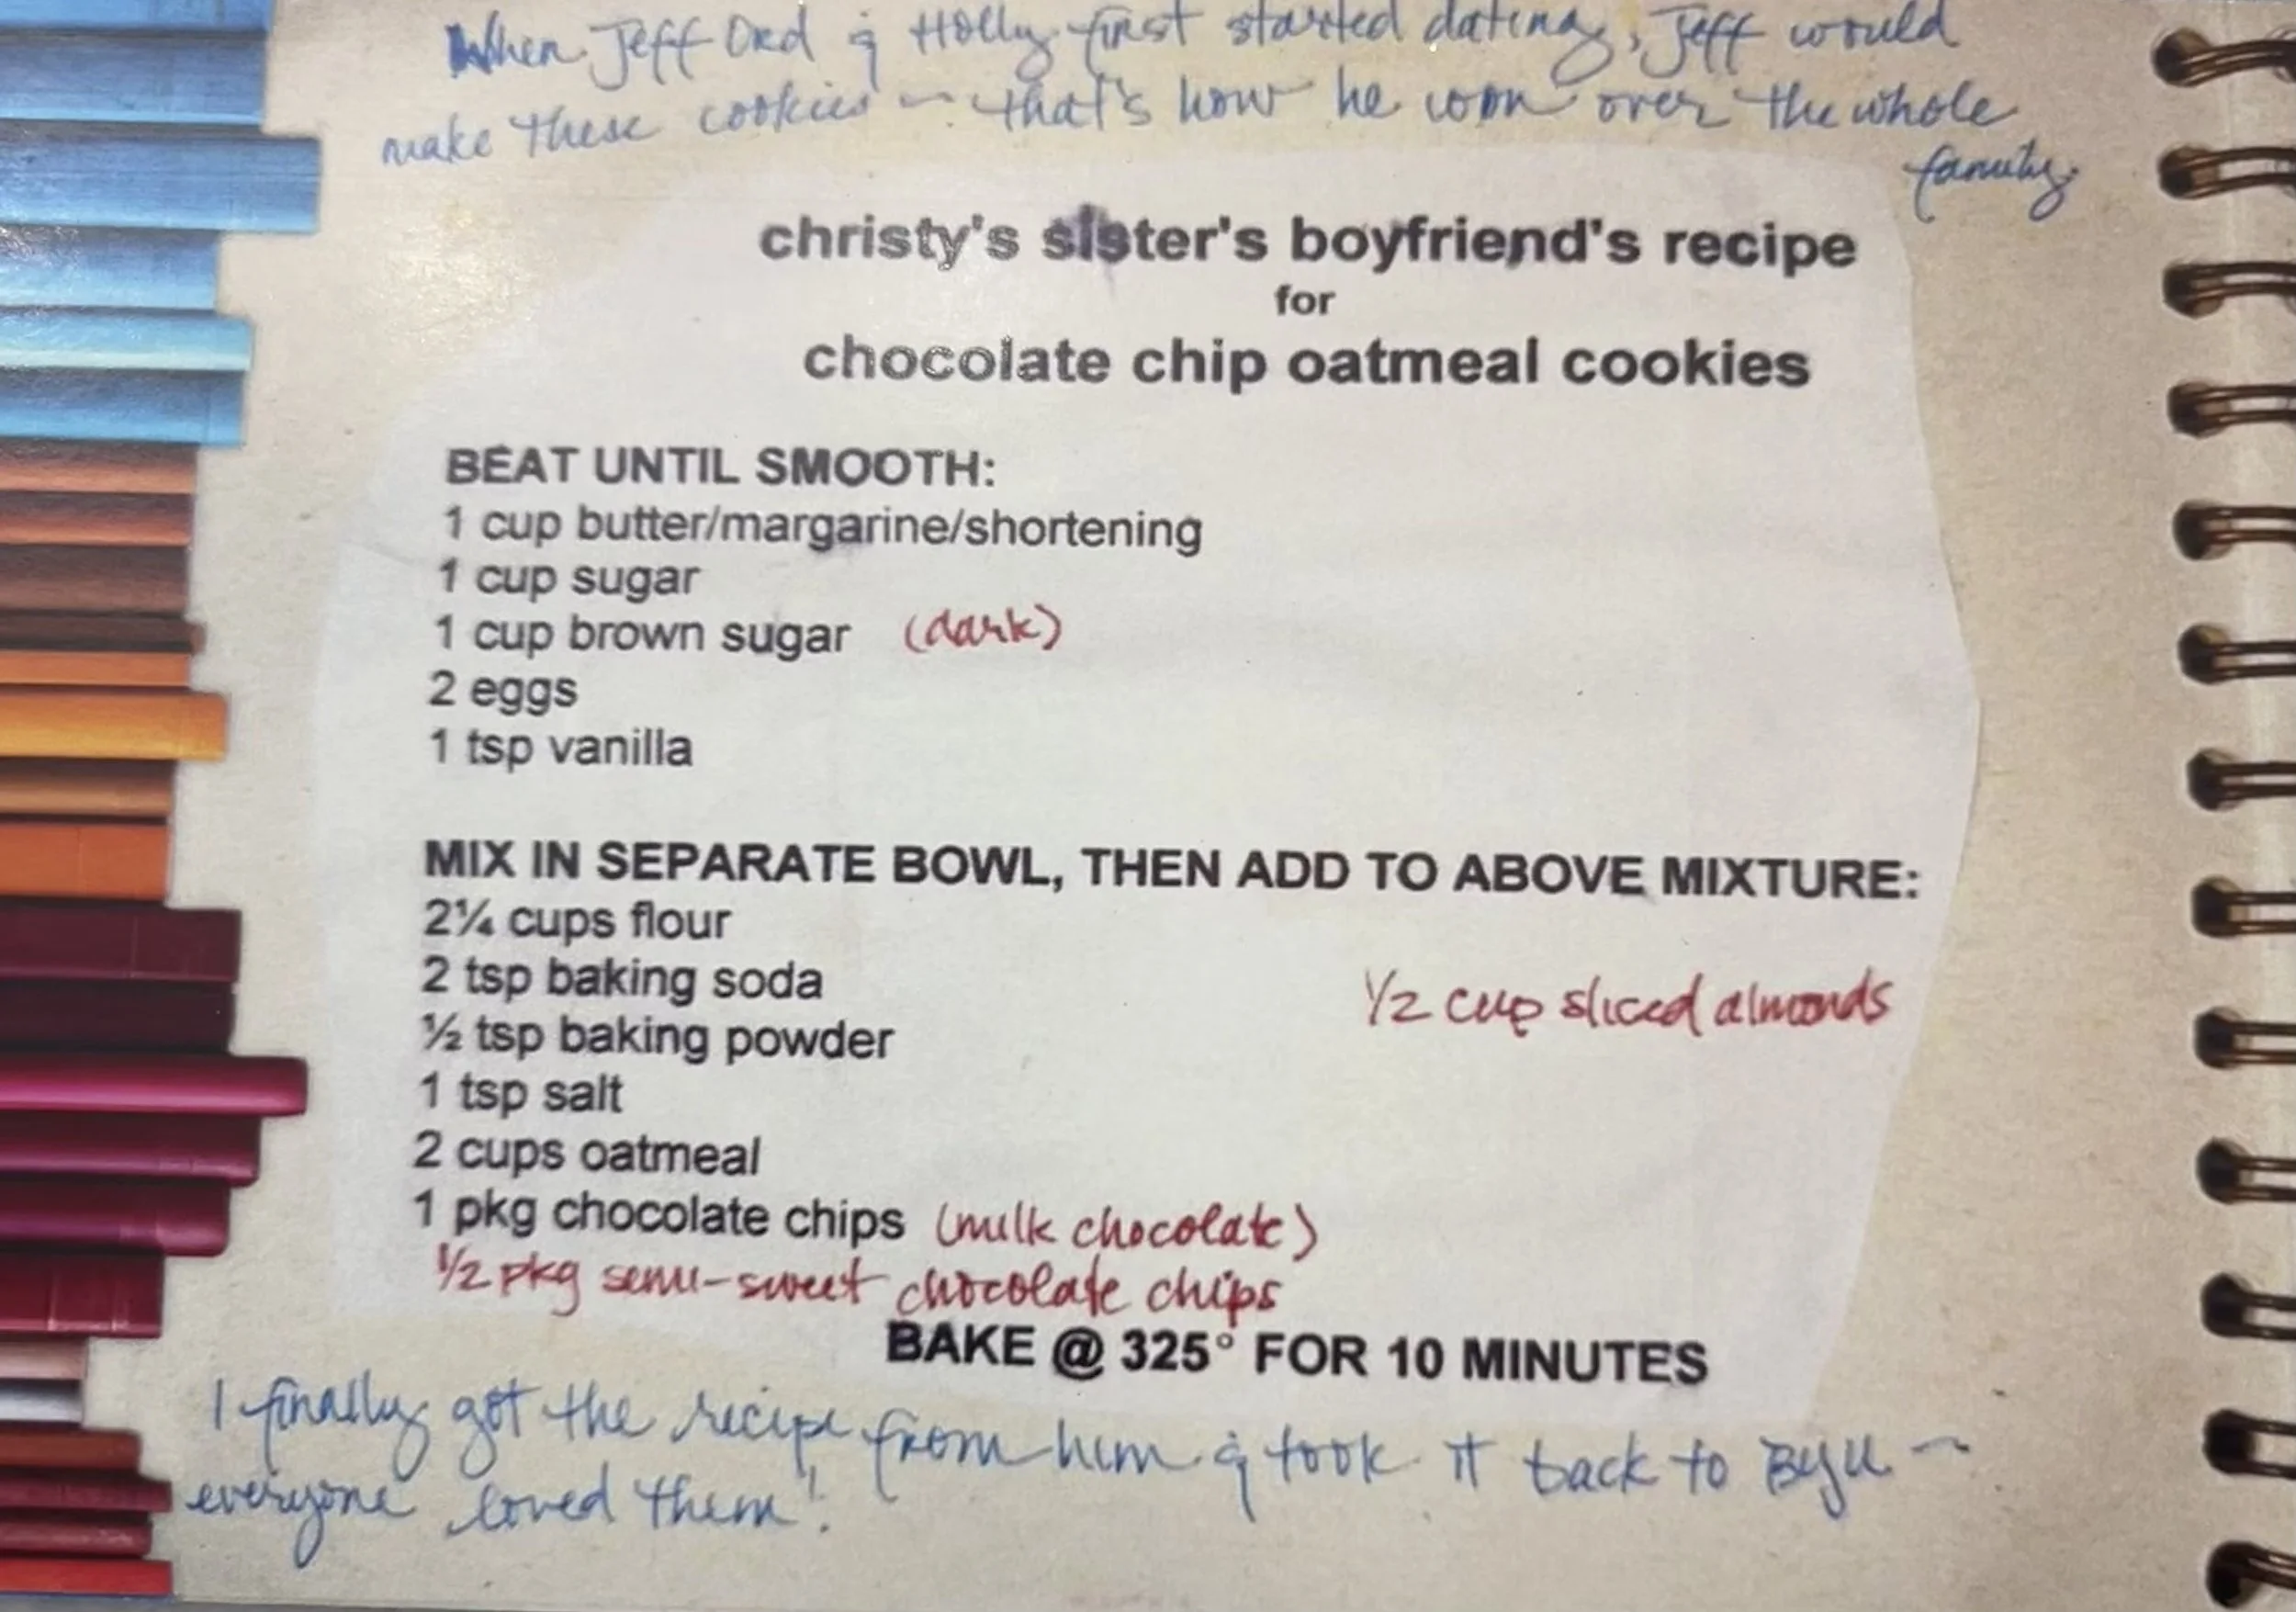 When Jeff Ord & Holly first started dating, Jeff would
make these cookies ~ that's how he won over the whole
family.
christy's sister's boyfriend's recipe
for
chocolate chip oatmeal cookies
BEAT UNTIL SMOOTH:
1 cup butter/margarine/shortening
1 cup sugar
1 cup brown sugar (dark)
2 eggs
1 tsp vanilla
MIX IN SEPARATE BOWL, THEN ADD TO ABOVE MIXTURE:
2¼ cups flour
2 tsp baking soda
1/2 cup sliced almonds
½ tsp baking powder
1 tsp salt
2 cups oatmeal
1 pkg chocolate chips (milk chocolate)
1/2 pkg semi-sweet chocolate chips
BAKE @ 325° FOR 10 MINUTES
I finally got the recipe from him & took it back to BYU ~
everyone loved them!